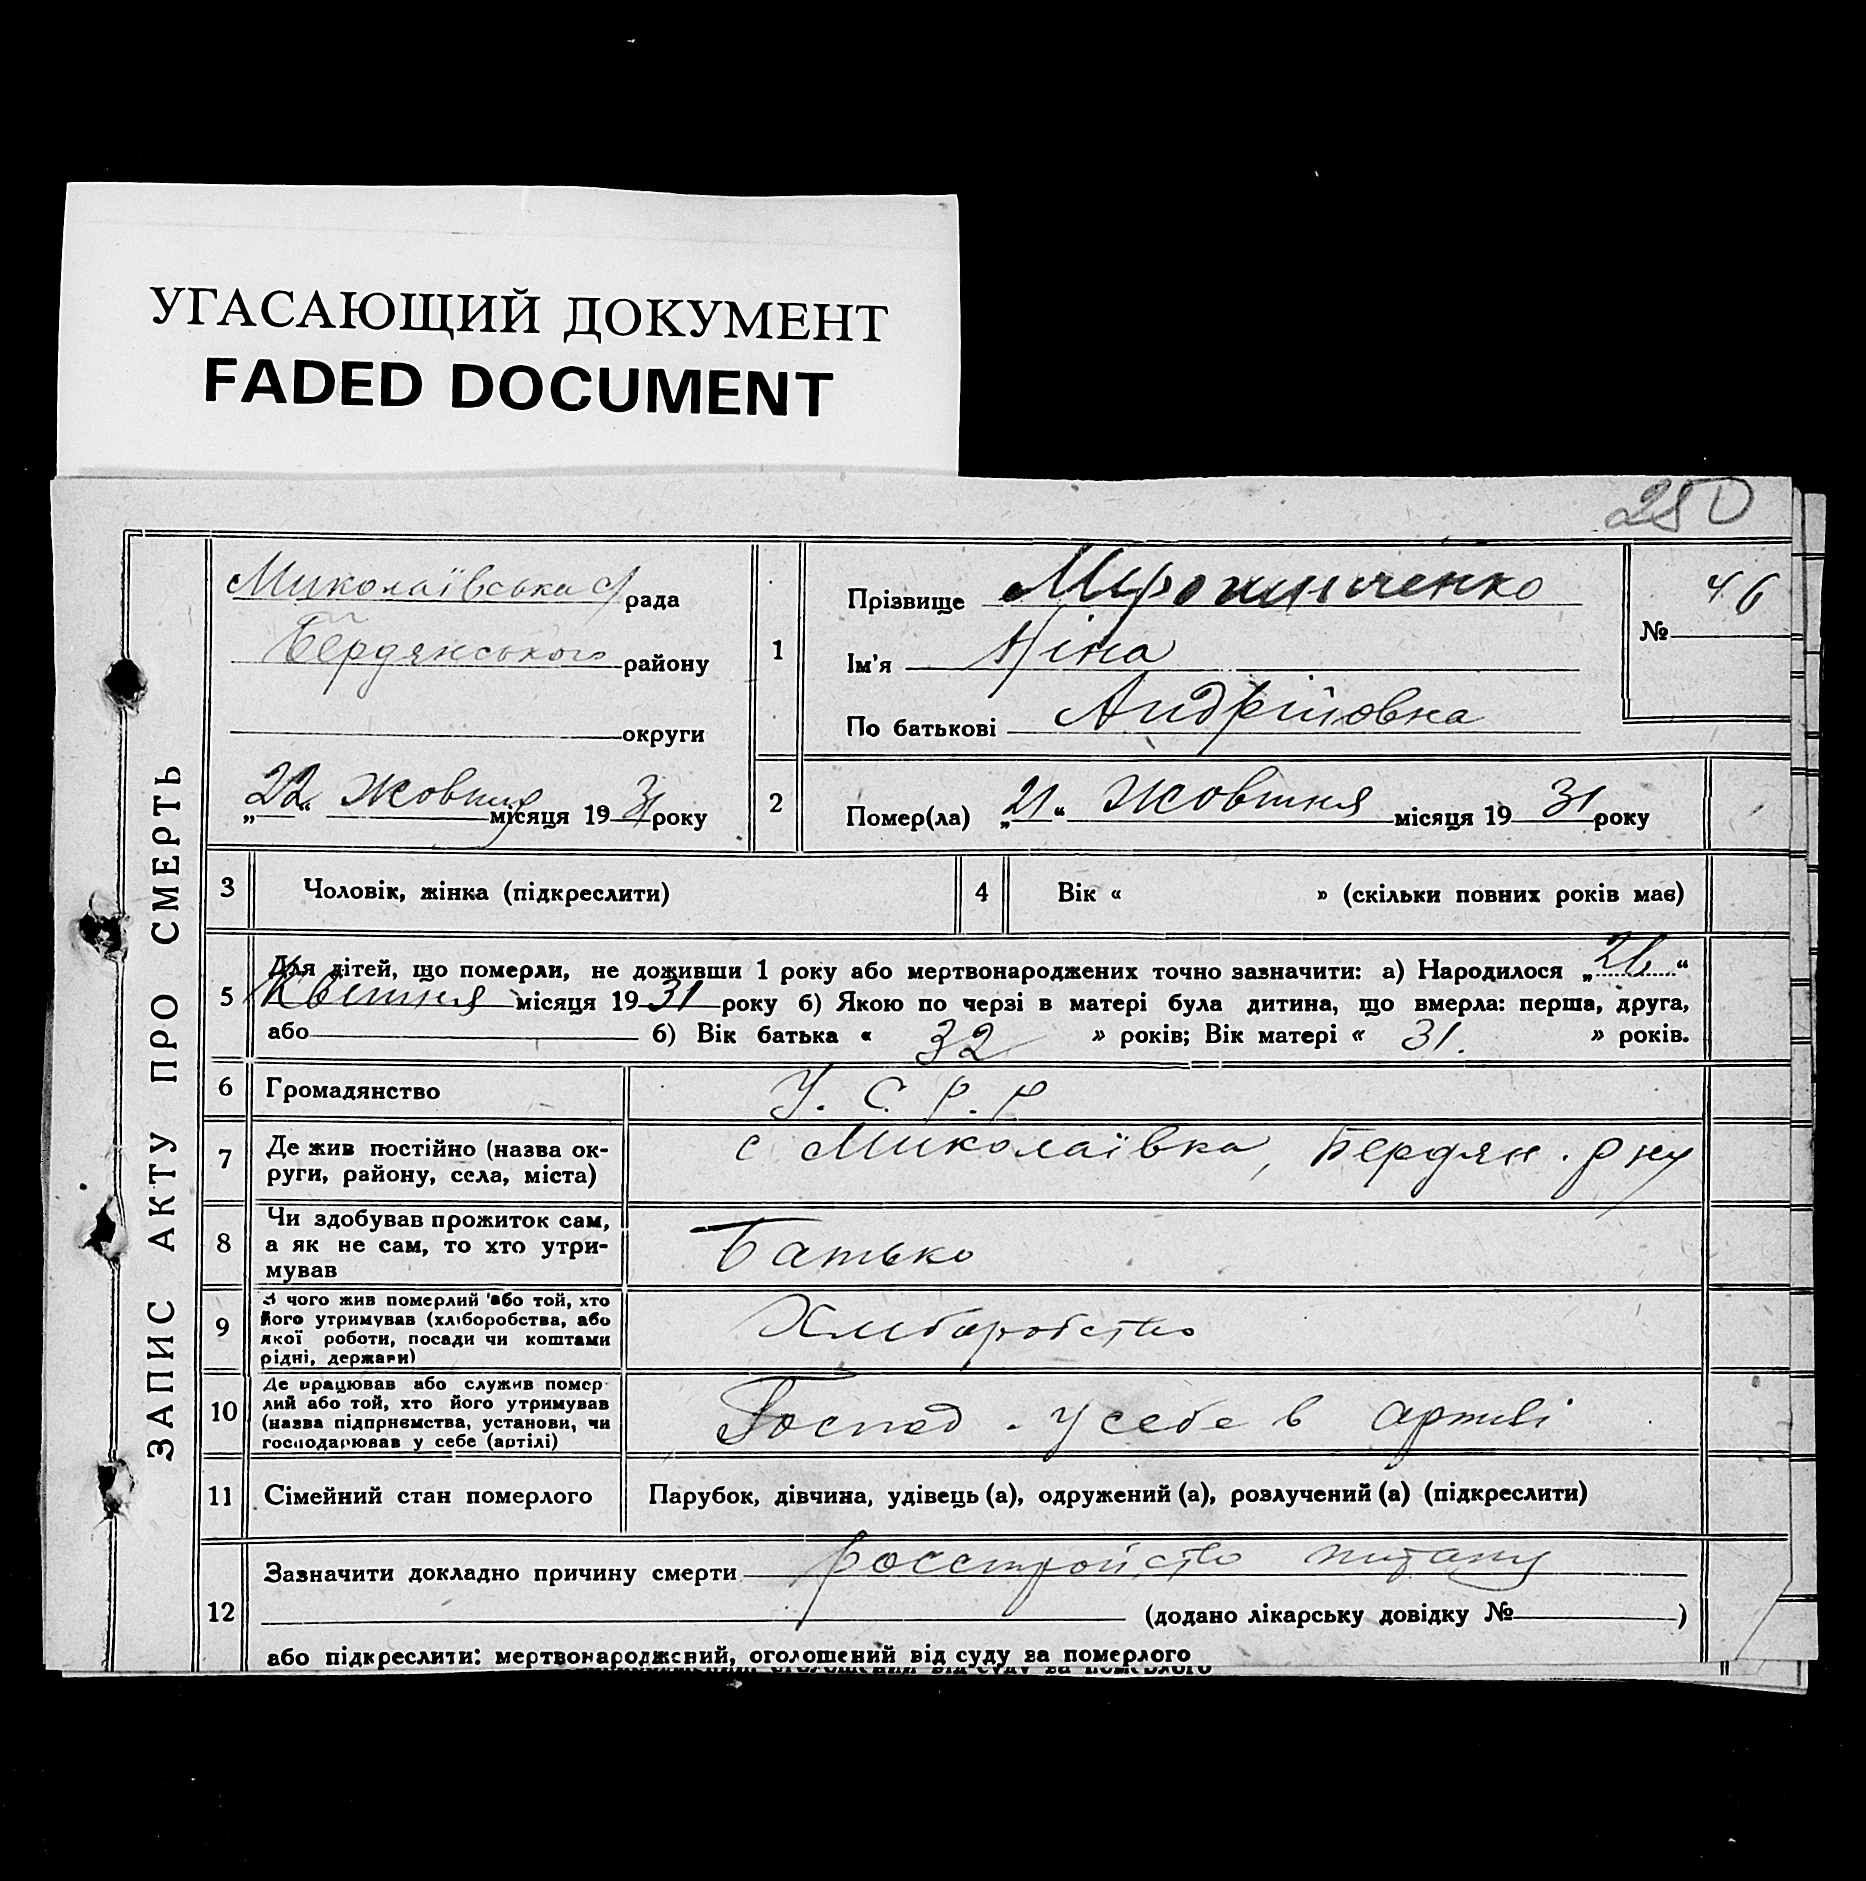 УГАСАЮЩИЙ ДОКУМЕНТ
FADED DOCUMENT
250
ЗАПИС АКТУ ПРО СМЕРТЬ
Миколаївська с/рада
Бердянського району
округи
„22“ Жовтня місяця 1931 року
1
Прізвище Мірошниченко
Ім'я Ніна
По батькові Андріївна
№ 46
2
Помер(ла) „21“ Жовтня місяця 1931 року
3 Чоловік, жінка (підкреслити)
4 Вік « » (скільки повних років має)
5 Для дітей, що померли, не доживши 1 року або мертвонароджених точно зазначити: а) Народилося „26“
Квітня місяця 1931 року б) Якою по черзі в матері була дитина, що вмерла: перша, друга,
або б) Вік батька « 32 » років; Вік матері « 31. » років.
6 Громадянство У. С. Р. Р
7 Де жив постійно (назва ок-
руги, району, села, міста)
с Миколаївка, Бердян. р ну
8 Чи здобував прожиток сам,
а як не сам, то хто утри-
мував
Батько
9 З чого жив померлий або той, хто
його утримував (хліборобства, або
якої роботи, посади чи коштами
рідні, держави)
Хліборобство
10 Де працював або служив помер-
лий або той, хто його утримував
(назва підприємства, установи, чи
господарював у себе (артілі)
Господ. у себе в артілі
11 Сімейний стан померлого
Парубок, дівчина, удівець (а), одружений (а), розлучений (а) (підкреслити)
12 Зазначити докладно причину смерти росстройство
(додано лікарську довідку № )
або підкреслити: мертвонароджений, оголошений від суду за померлого